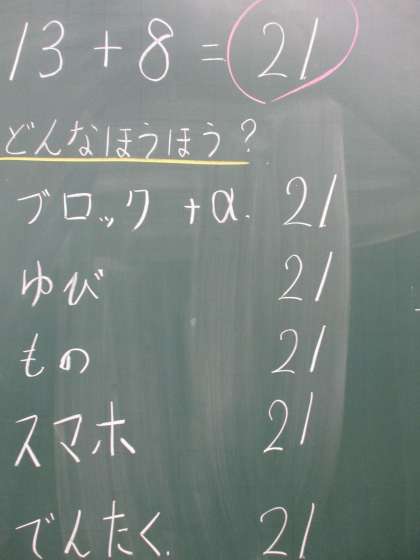 13 + 8 = 21
どんなほうほう?
ブロック +α. 21
ゆび 21
もの 21
スマホ 21
でんたく. 21